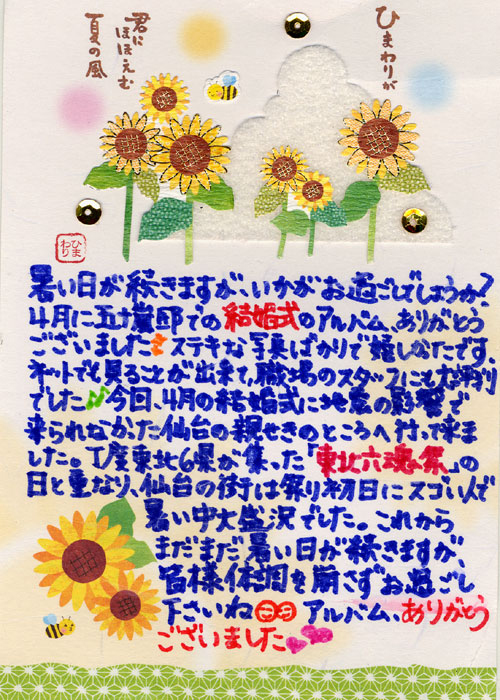 ひまわりが
君に
ほほえむ
夏の風
ひまわり
暑い日が続きますが、いかがお過ごしでしょうか?
4月に五十嵐邸での結婚式のアルバム、ありがとう
ございました ステキな写真ばかりで嬉しかったです。
ネットでも見ることが出来て、職場のスタッフにも大好評
でした♪今回、4月の結婚式に地震の影響で
来られなかった仙台の親せきのところへ行って来ま
した。丁度東北6県が集った「東北六魂祭」の
日と重なり、仙台の街は祭り初日にスゴイ人で
暑い中大盛況でした。これから
まだまだ暑い日が続きますが、
皆様体調を崩さずお過ごし
下さいね アルバム、ありがとう
ございました